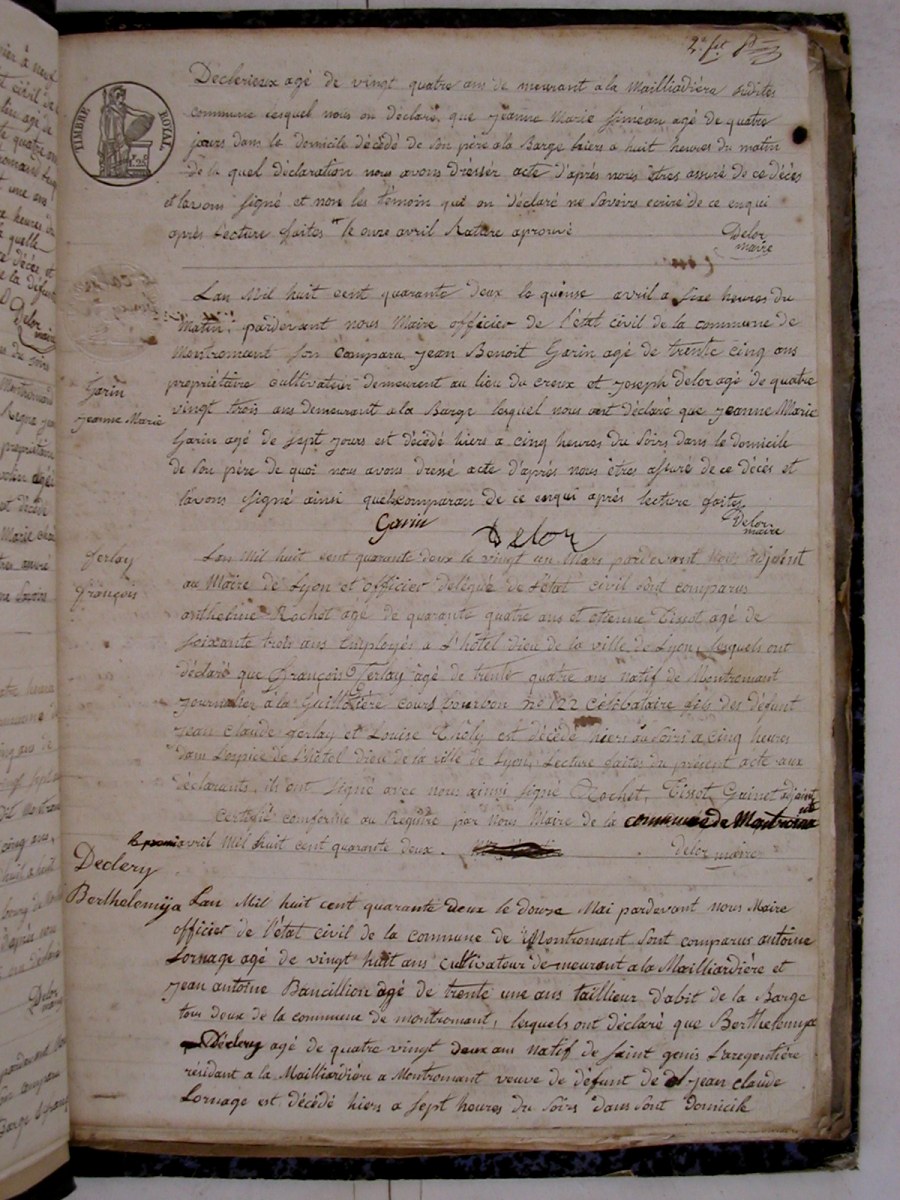 2e fet
TIMBRE ROYAL
Déclerieux agé de vingt quatre ans de meurant a la Mailliardière sudites
commune lesquel nous on déclaré, que jeanne Marie Siméan agé de quatre
jours dans le domicile décédé de son père a la Barge hiers a huit heures du matin
de la quel déclaration nous avons Dresser acte d'après nous êtres assuré de ce décès
et lavons signé et non les témoin qui on déclaré ne savoirs ecrire de ce enqui
après lecture faites le onze avril Rature aprouvé
Delor
maire
Garin
jeanne Marie
Lan Mil huit cent quarante deux le quinse avril a sixe heures du
Matin, pardevant nous Maire officier de l'état civil de la commune de
Montromant son compara jean Benoit Garin agé de trente cinq ans
propriétaire cultivateur demeurent au lieu du creux et joseph Delor agé de quatre
vingt trois ans demeurant a la Barge lesquel nous ont déclaré que jeanne Marie
Garin agé de sept jours est décédé hiers a cinq heures du soirs dans le domicile
de son père de quoi nous avons dressé acte d'après nous êtres assuré de ce décés et
lavons signé ainsi que les comparan de ce enqui après lecture faites
Garin Delor Delor
maire
ferlay
françois
Lan Mil huit cent quarante deux le vingt un Mars pardevant Nous adjoint
au Maire de Lyon et officier délégué de l'état civil sont comparus
anthelme Rochet agé de quarante quatre ans et etienne Tissot agé de
soixante trois ans Employés a L'hôtel dieu de la ville de Lyon, lesquels ont
déclaré que françois ferlay agé de trente quatre ans natif de Montromant
journalier a la Guillotière cours bourbon no 122 célébataire fils des défunt
jean Claude ferlay et Louise Tholy est décédé hiers au soirs a cinq heures
dans l'ospice de l'hôtel dieu de la ville de Lyon, Lecture faites du présent acte aux
déclarants, ils ont signé avec nous ainsi signé Rochet, Tissot Guinet adjoint
Certifié comforme au Régistre par nous Maire de la commune de Montromant
le premier avril Mil huit cent quarante deux. Delor maire
Declery
Berthelemija
Lan Mil huit cent quarante deux le douze Mai pardevant nous Maire
officier de l'état civil de la commune de Montromant sont comparus antoine
Lornage agé de vingt huit ans cultivateur de meurant a la Mailliardière et
jean antoine Bancillion agé de trente une ans taillieur d'abit de la Barge
tous deux de la commune de montromant, lesquels ont déclaré que Berthelemya
Déclery agé de quatre vingt deux ans natif de Saint genis Largentière
résidant a la Mailliardière a Montromant veuve de défunt de jean claude
Lornage est décédé hiers a sept heures du soirs dans sont domicile